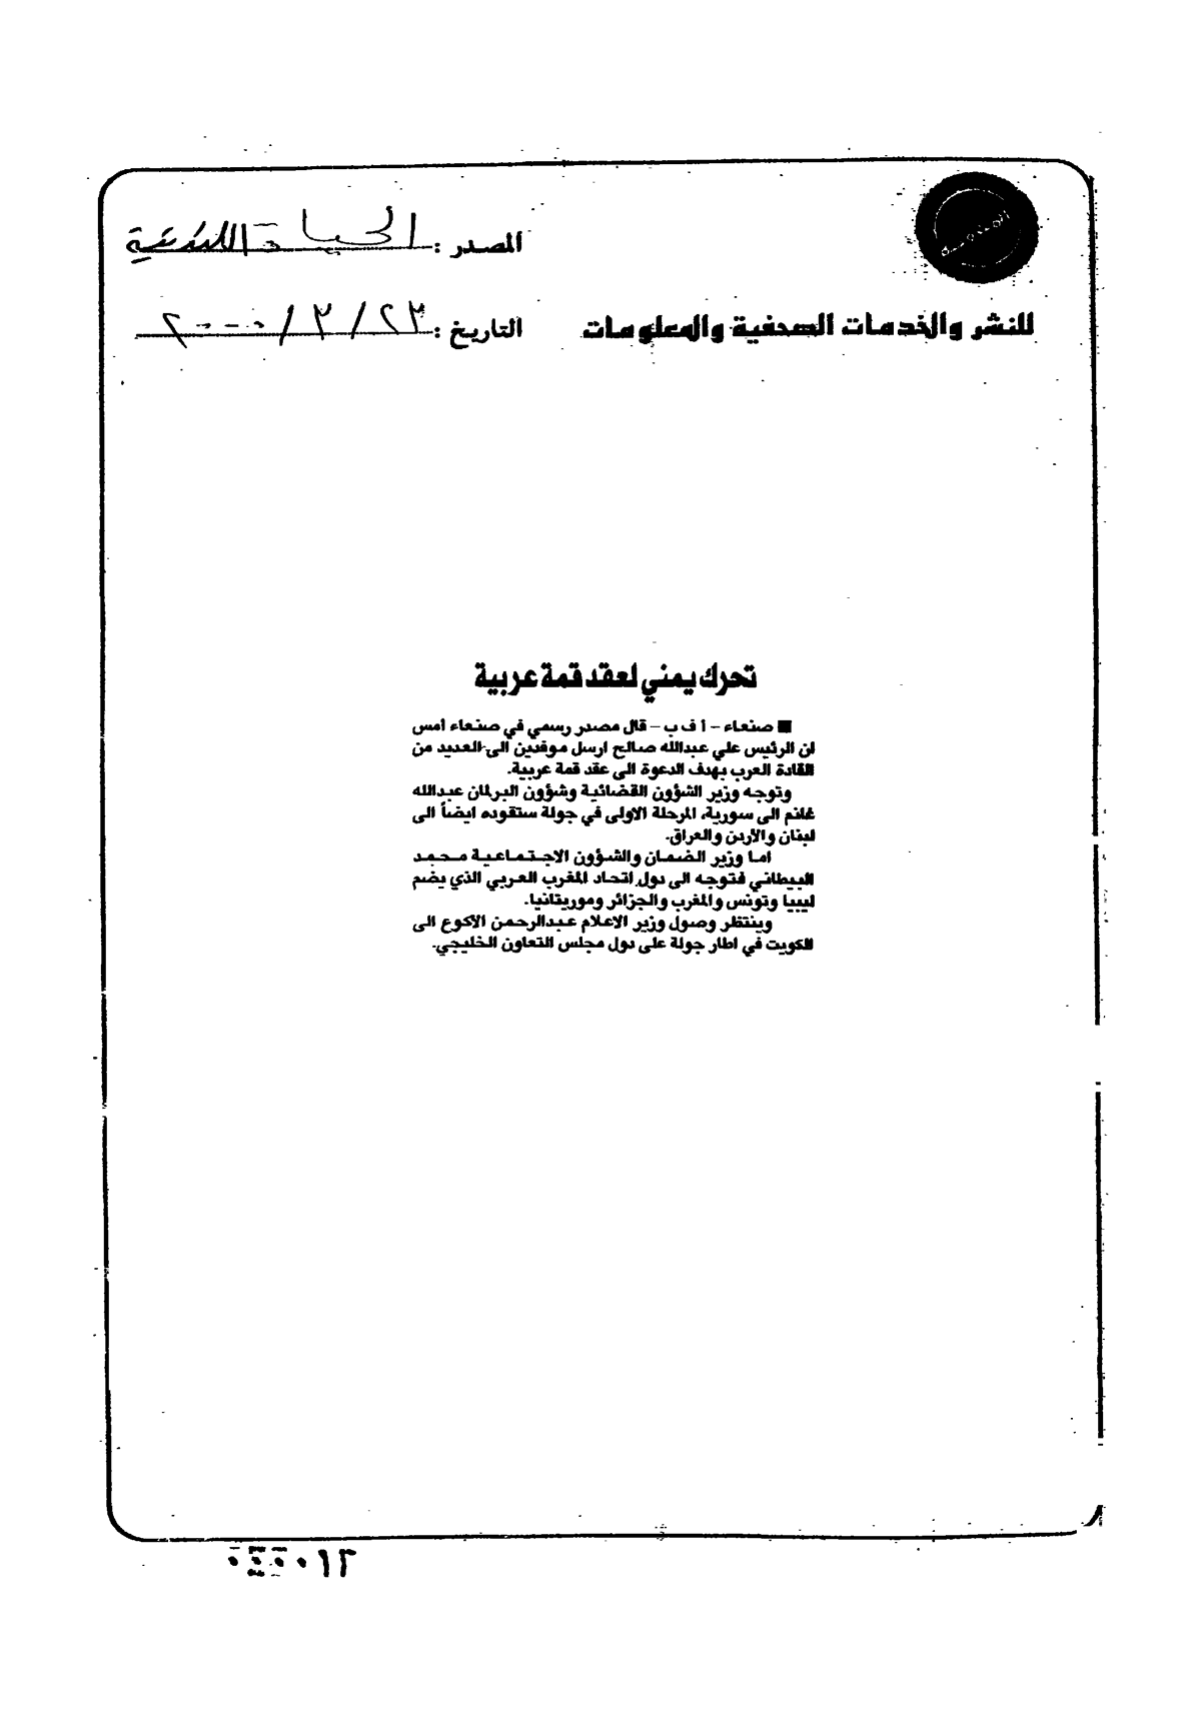 المصدر : الحياة اللندنية
للنشر والخدمات الصحفية والمعلومات
التاريخ : ٢٣ / ٣ / ٢٠٠٠
تحرك يمني لعقد قمة عربية
■ صنعاء – أ ف ب – قال مصدر رسمي في صنعاء امس
ان الرئيس علي عبدالله صالح ارسل موفدين الى العديد من
القادة العرب بهدف الدعوة الى عقد قمة عربية.
وتوجه وزير الشؤون القضائية وشؤون البرلمان عبدالله
غانم الى سورية، المرحلة الاولى في جولة ستقوده ايضاً الى
لبنان والاردن والعراق.
اما وزير الضمان والشؤون الاجتماعية محمد
البيطاني فتوجه الى دول اتحاد المغرب العربي الذي يضم
ليبيا وتونس والمغرب والجزائر وموريتانيا.
وينتظر وصول وزير الاعلام عبدالرحمن الاكوع الى
الكويت في اطار جولة على دول مجلس التعاون الخليجي.